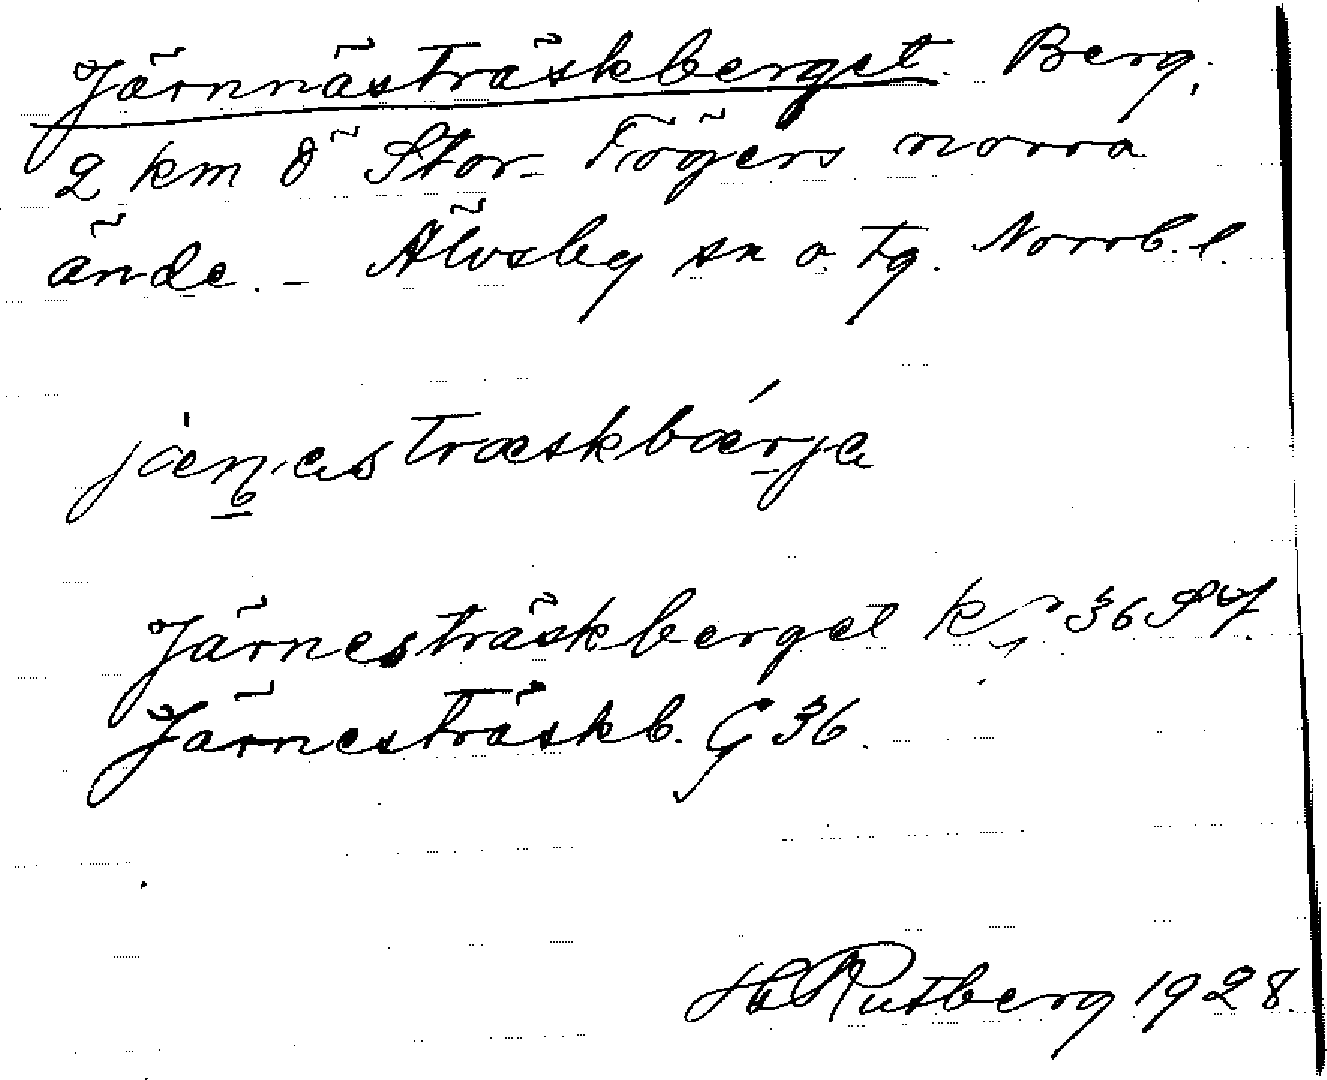 Järnnästräskberget. Berg.
2 km ö Stor-Tögers norra
ände. – Älvsby sn o. tg. Norrb. l.
Järnesträskberget 36
Järnesträskb. G 36.
Rutberg 1928.